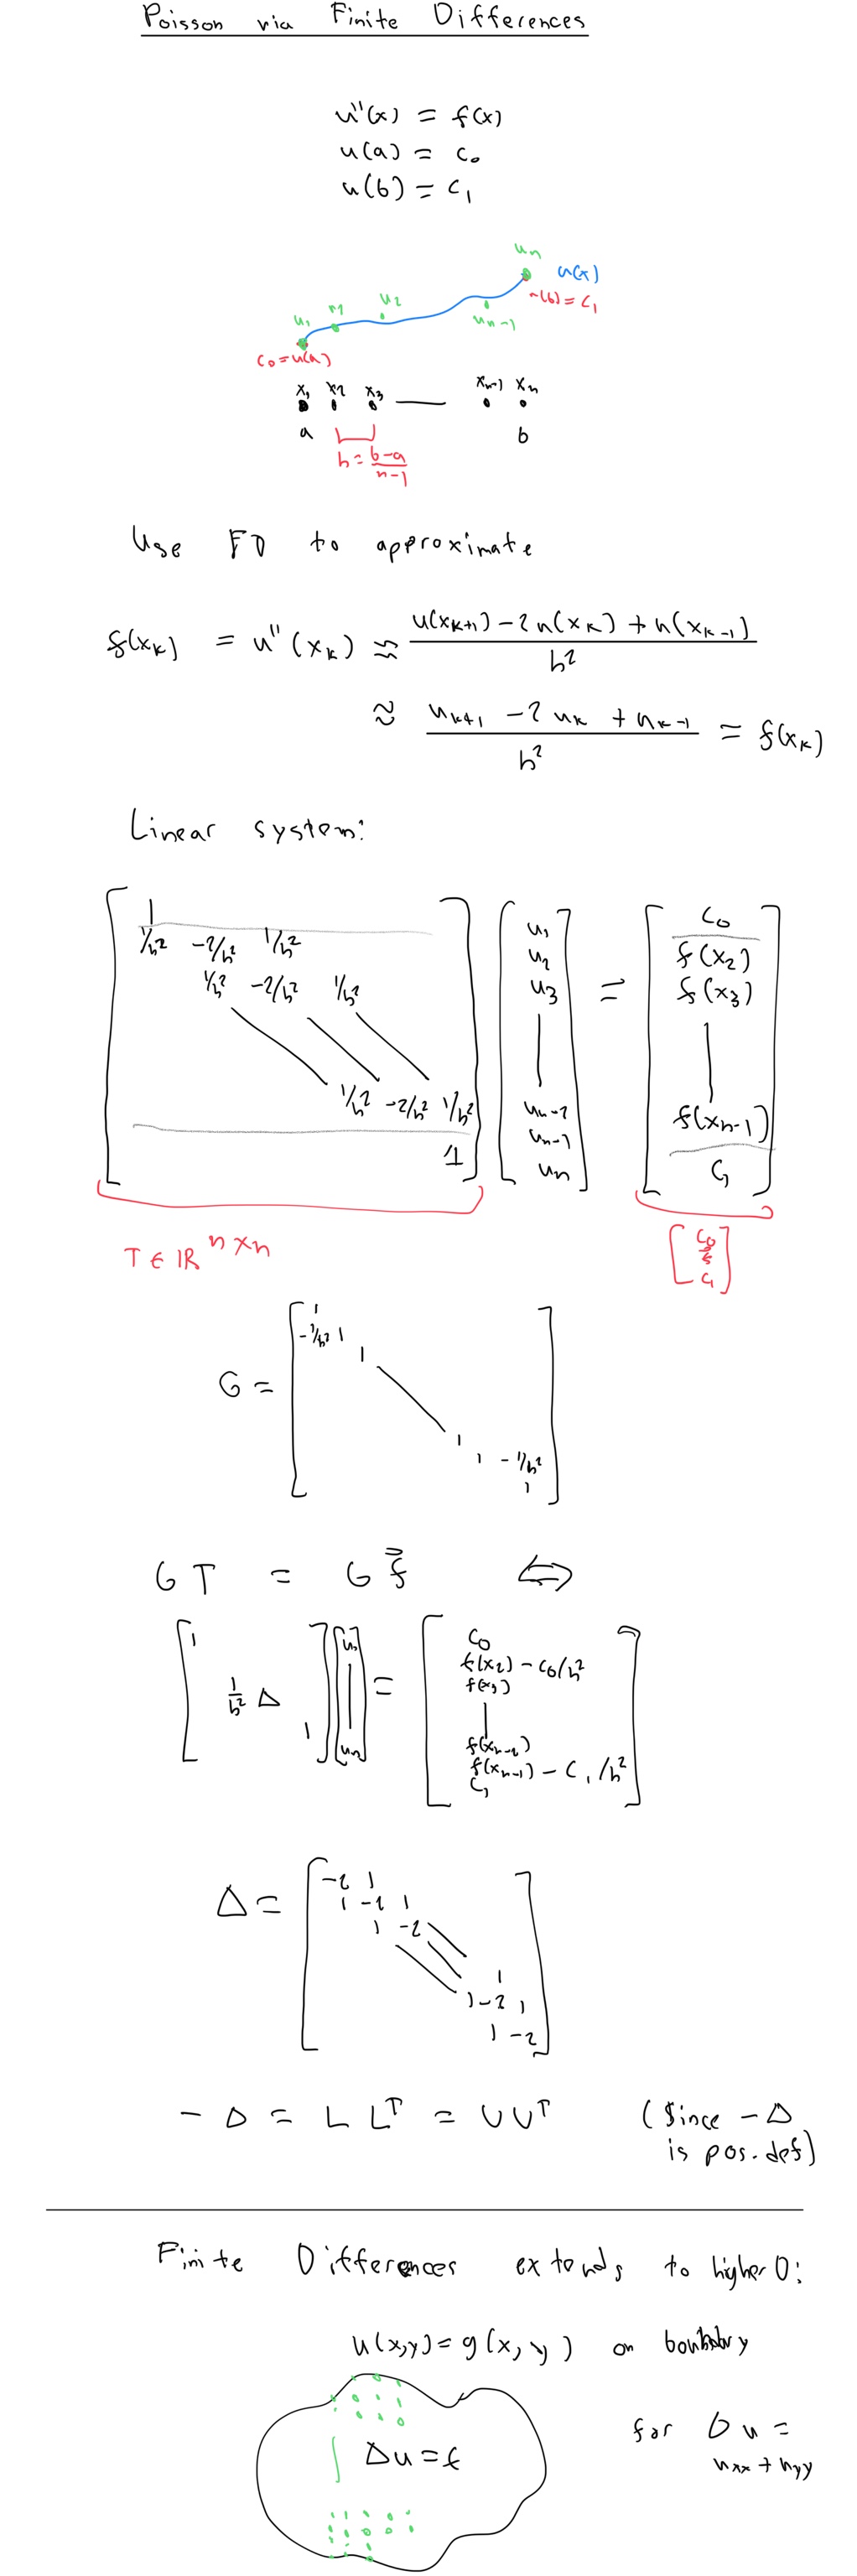 Poisson via Finite Differences
u''(x) = f(x)
u(a) = c₀
u(b) = c₁
uₙ
u(x)
u(b) = c₁
u₁
u₂
uₙ₋₁
c₀ = u(a)
x₁ x₂ x₃ — xₙ₋₁ xₙ
a b
h = (b-a)/(n-1)
Use FD to approximate
f(xₖ) = u''(xₖ) ≈ (u(xₖ₊₁) - 2u(xₖ) + u(xₖ₋₁))/h²
≈ (uₖ₊₁ - 2uₖ + uₖ₋₁)/h² = f(xₖ)
Linear system:
1 u₁ c₀
1/h² -2/h² 1/h² u₂ f(x₂)
1/h² -2/h² 1/h² u₃ = f(x₃)
1/h² -2/h² 1/h² uₙ₋₂ f(xₙ₋₁)
uₙ₋₁
1 uₙ c₁
T ∈ ℝⁿˣⁿ
c₀
f
c₁
1
-1/h² 1
1
G =
1
1 -1/h²
1
G T = G f ⇔
1 u₁ c₀
f(x₂) - c₀/h²
f(x₃)
1/h² Δ =
f(xₙ₋₂)
1 f(xₙ₋₁) - c₁/h²
c₁
-2 1
Δ = 1 -2 1
1 -2
1
1 -2 1
1 -2
- Δ = L Lᵀ = U Uᵀ (Since -Δ
is pos. def)
Finite Differences extends to higher D:
u(x,y) = g(x,y) on boundary
for Δu =
uₓₓ + u_yy
Δu = f